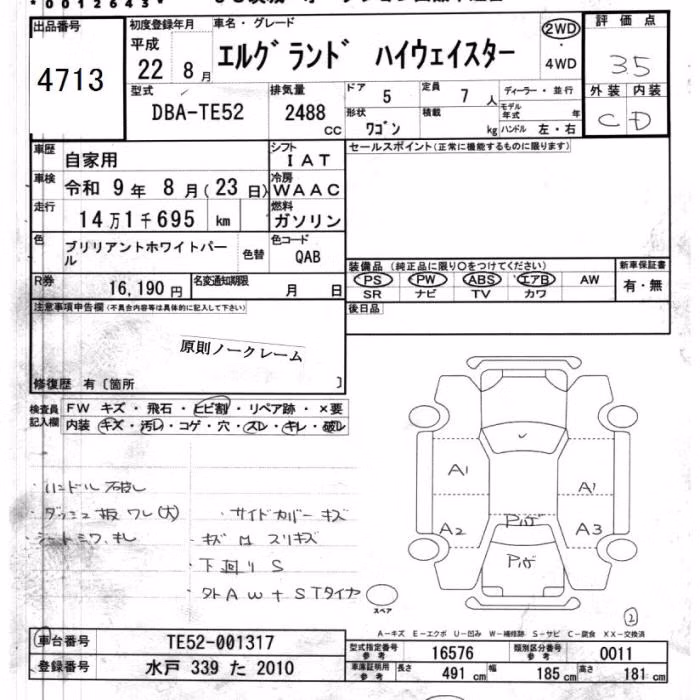 *0012643*
出品番号
4713
初度登録年月
平成
22 8月
車名・グレード
エルグランド ハイウェイスター
2WD
・
4WD
評価点
3.5
外装 内装
C D
型式
DBA-TE52
排気量
2488
CC
ドア 5
定員 7人
形状 ワゴン
積載 kg
ディーラー・並行
モデル年式 年
ハンドル 左・右
車歴 自家用
シフト IAT
車検 令和 9年 8月(23日)
冷房 WAAC
走行 14万1千695 km
燃料 ガソリン
色 ブリリアントホワイトパール
色替
色コード QAB
R券 16,190円
名変通知期限 月 日
セールスポイント(正常に機能するものに限ります)
装備品(純正品に限り○をつけてください)
PS PW ABS エアB AW
SR ナビ TV カワ
新車保証書
有・無
後日品
注意事項申告欄(不具合内容等は具体的に記入して下さい)
原則ノークレーム
修復歴 有〔箇所 〕
検査員記入欄
FW キズ・飛石・ヒビ割・リペア跡・×要
内装 キズ・汚レ・コゲ・穴・スレ・キレ・破レ
・ダッシュ板 ワレ(大)
・サイドカバー キズ
・シートシワ、キレ
・キズ M スリキズ
・下回り S
・外AW+STタイヤ
A1
A2
A1
A3
スペア
2
A-キズ E-エクボ U-凹み W-補修跡 S-サビ C-腐食 XX-交換済
車台番号 TE52-001317
登録番号 水戸 339 た 2010
型式指定番号 参考 16576
類別区分番号 参考 0011
車庫証明用 参考 長さ 491cm 幅 185cm 高さ 181cm